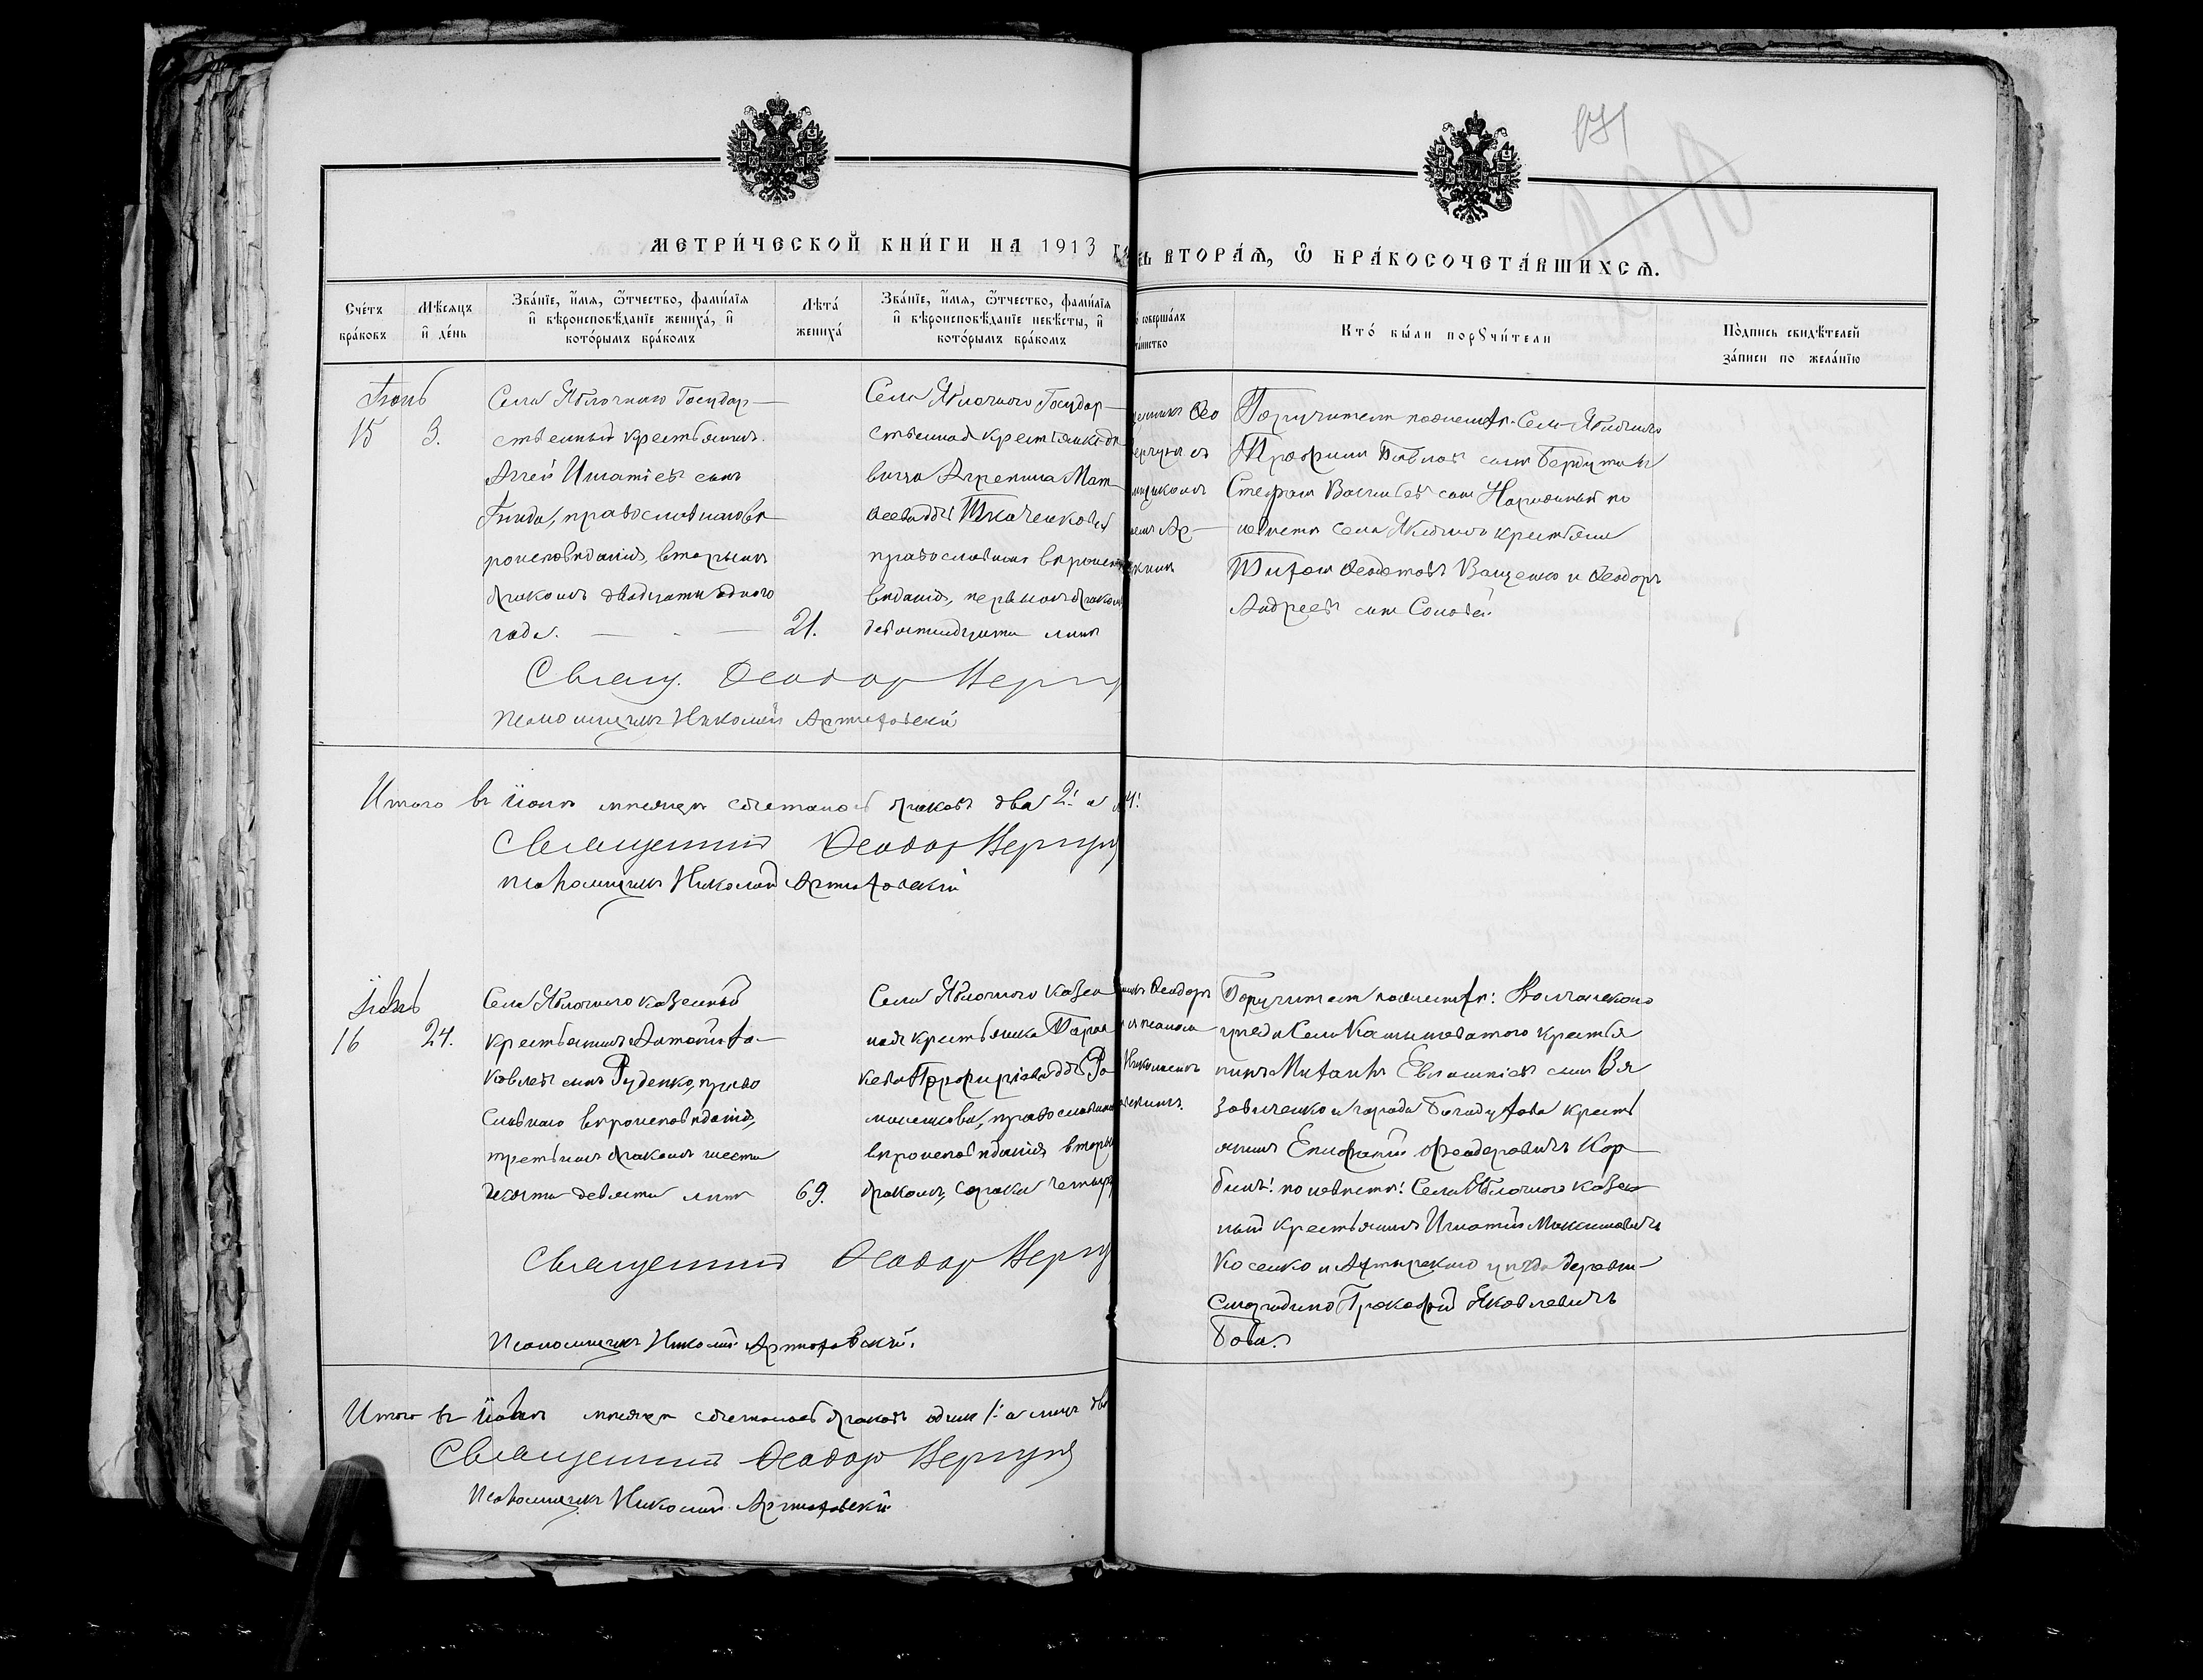 МЕТРИ́ЧЕСКОЙ КНИ́ГИ НА 1913
ВТОРА́Ѧ, Ѽ БРА́КОСОЧЕТА́ВШИХСѦ.
Сче́тъ бра́ковъ
Мѣ́сяцъ и҆ де́нь
Зва́нїе, и҆́мѧ, ѻ҆́тчество, фамилїѧ и҆ вѣроисповѣ́данїе жениха́, и҆ кото́рымъ бра́комъ
Лѣта̀ жениха́
Зва́нїе, и҆́мѧ, ѻ҆́тчество, фамилїѧ и҆ вѣроисповѣ́данїе невѣ́сты, и҆ кото́рымъ бра́комъ
соверша́лъ
Кто́ бы́ли порꙋчи́тели
По́дпись свидѣ́телей за́писи по жела́нїю
Іюнь
15 3.
Села Яблочнаго Государ-
ственный крестьянинъ
Аггей Игнатіевъ сынъ
Гнида, православнаго вѣ-
роисповѣданія, вторымъ
бракомъ двадцати одного
года. 21.
Села Яблочнаго Государ-
ственная крестьянка дѣ-
вица Агрепина Мат-
ѳеева дочь Ткаченкова
православнаго вѣроиспо
вѣданія, первымъ бракомъ
девятнадцати лѣтъ
Поручители по женихѣ: Села Яблочнаго
Трофимъ Павловъ сынъ
Стефанъ Васильевъ сынъ Нарожный по
невѣстѣ села Яблочнаго крестьяне
Титъ Ващенко и Ѳеодоръ
Андреевъ сынъ Соловей
Свящ. Ѳеодоръ
Псаломщикъ Николай Артюховскій
Итого въ Іюнѣ мѣсяцѣ сочеталось браковъ два 2! а
Священникъ Ѳеодоръ
Псаломщикъ Николай Артюховскій
Іюль
16 24.
Села Яблочнаго казенный
крестьянинъ Антоній Іа-
ковлевъ сынъ Руденко, право
славнаго вѣроисповѣданія,
третьимъ бракомъ шести
десяти девяти лѣтъ 69.
Села Яблочнаго казен
ная крестьянка Парас
кева Порфиріева дочь Ро
маненкова, православнаго
вѣроисповѣданія вторы
бракомъ, сорока четыр
Ѳеодоръ
Николаемъ
Поручители по женихѣ: Волчанскаго
уѣзда Села крестья
нинъ Михаилъ Евлампіевъ сынъ Вя
зовиченко и города Богодухова кресть
янинъ Епифаній Ѳеодоровичъ Кор
бинъ! по невѣстѣ! Села Яблочнаго казен
ный крестьянинъ Игнатій Максимовичъ
Косенко и Ахтырскаго уѣзда деревни
Смородино Прокофій Яковлевичъ
Бова.
Священникъ Ѳеодоръ
Псаломщикъ Николай Артюховскій.
Итого въ Іюлѣ мѣсяцѣ сочеталось браковъ одинъ 1! а лицъ два
Священникъ Ѳеодоръ
Псаломщикъ Николай Артюховскій